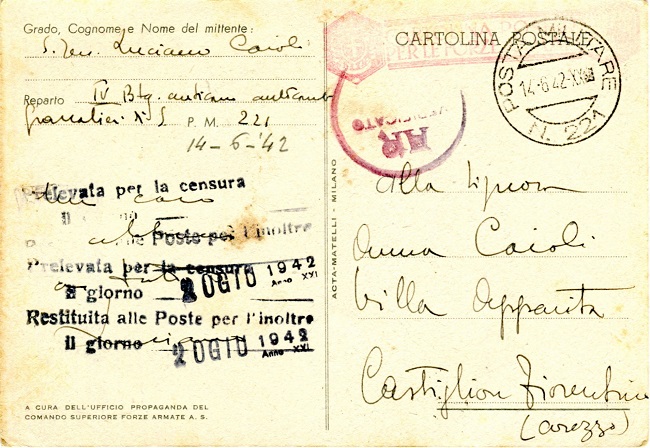 Grado, Cognome e Nome del mittente:
S. Ten. Luciano Caioli
Reparto IV Btg.
Granatieri P. M. 221
14-6-'42
Prelevata per la censura
Il giorno
alle Poste per l'inoltre
Prelevata per la censura
Il giorno 20 GIU 1942 Anno XXI
Restituita alle Poste per l'inoltre
Il giorno 20 GIU 1942 Anno XXI
A CURA DELL'UFFICIO PROPAGANDA DEL
COMANDO SUPERIORE FORZE ARMATE A. S.
ACTA-MATELLI - MILANO
CARTOLINA POSTALE
POSTA MILITARE
14·6·42·XX
N. 221
Alla Signora
Anna Caioli
Villa Apparita
Castiglion Fiorentino
(Arezzo)